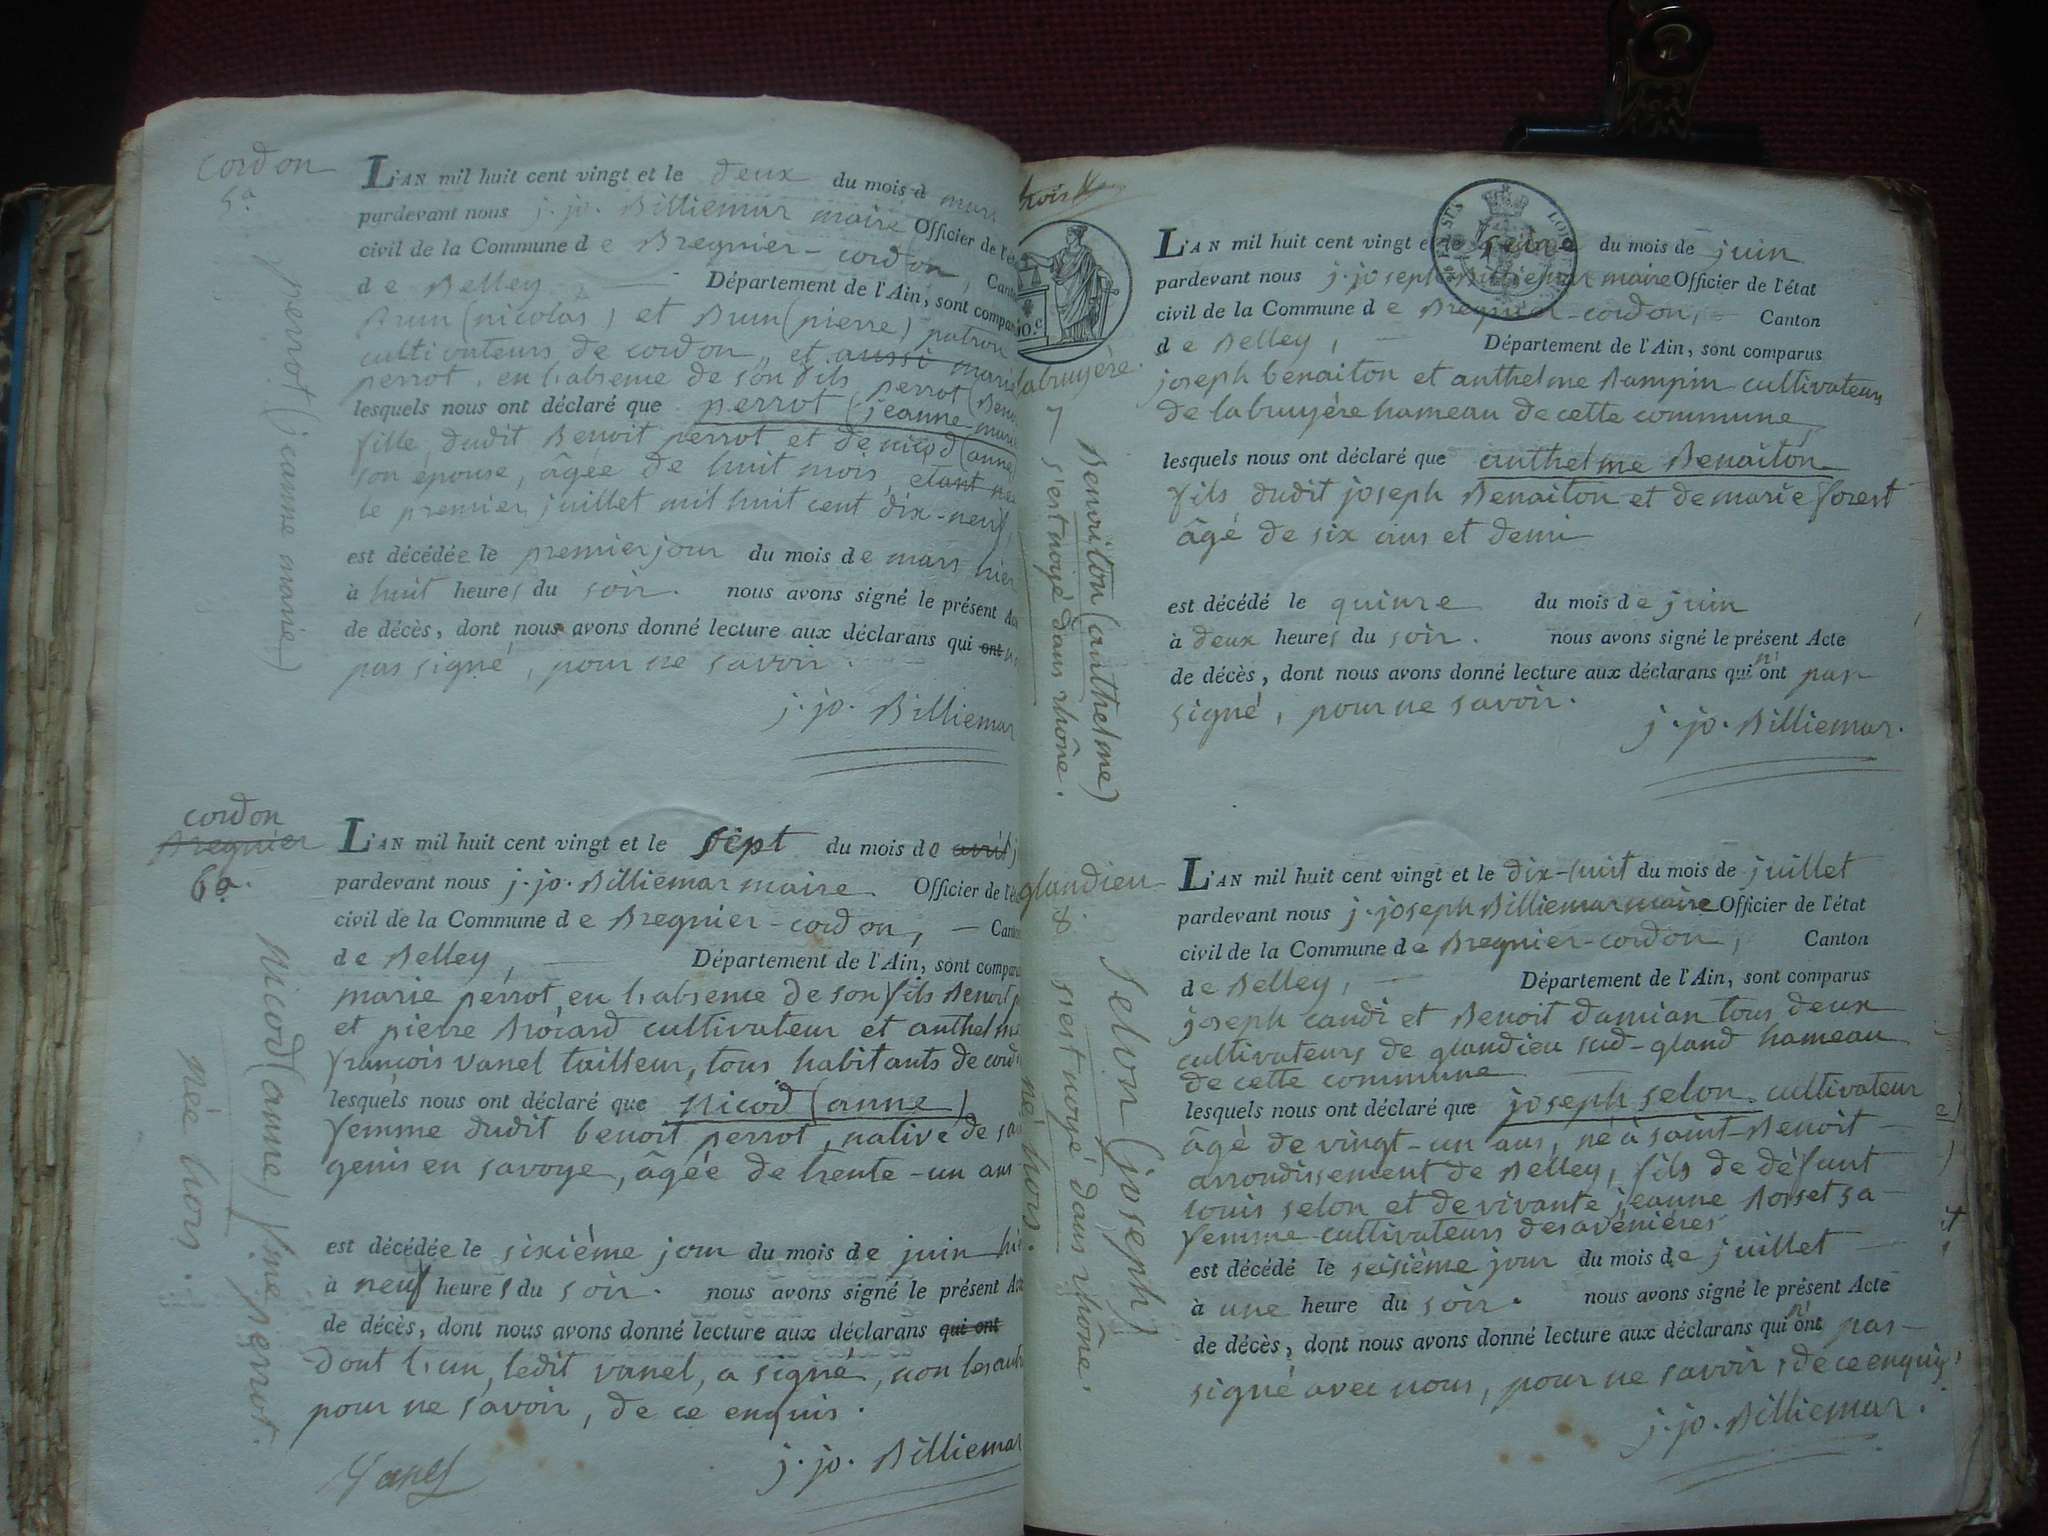 cordon
5e.
perrot (jeanne marie)
L'AN mil huit cent vingt et le deux du mois d mars
pardevant nous j. jo. Billiemar maire Officier de l'
civil de la Commune de Bregnier-cordon, Cant
de Belley, Département de l'Ain, sont compar
Brun (nicolas) et Brun (pierre) patron
cultivateurs de cordon, et aussi marie
perrot, en l'absence de son fils perrot (Ben
lesquels nous ont déclaré que perrot (jeanne marie
fille dudit Benoit perrot et de nicod (anne)
son epouse, âgée de huit mois, etant née
le premier juillet mil huit cent dix-neuf,
est décédée le premier jour du mois de mars hier
à huit heures du soir. nous avons signé le présent Ac
de décès, dont nous avons donné lecture aux déclarans qui ont n
pas signé, pour ne savoir.
j. jo. Billiemar
cordon
Bregnier
6e.
Nicod (anne) fme perrot.
née hors.
L'AN mil huit cent vingt et le sept du mois de avril j
pardevant nous j. jo. Billiemar maire Officier de l'
civil de la Commune de Bregnier-cordon, Can
de Belley, Département de l'Ain, sont compar
marie perrot, en l'absence de son fils Benoit p
et pierre cultivateur et anthelme
françois vanel tailleur, tous habitants de cord
lesquels nous ont déclaré que Nicod (anne)
femme dudit benoit perrot, native de sa
genis en savoye, âgée de trente-un ans
est décédée le sixiéme jour du mois de juin hi
à neuf heures du soir. nous avons signé le présent Ac
de décès, dont nous avons donné lecture aux déclarans qui ont
dont l'un, ledit vanel, a signé, non les autr
pour ne savoir, de ce enquis.
Vanel
j. jo. Billiemar
labruyère.
7
Benaiton (anthelme)
s'est noyé dans rhône.
L'AN mil huit cent vingt et le du mois de juin
pardevant nous j. joseph Billiemar maire Officier de l'état
civil de la Commune de Bregnier-cordon, Canton
de Belley, Département de l'Ain, sont comparus
joseph benaiton et anthelme Bampin cultivateurs
de labruyère hameau de cette commune,
lesquels nous ont déclaré que anthelme Benaiton
fils dudit joseph Benaiton et de marie forest
âgé de six ans et demi
est décédé le quinze du mois de juin
à deux heures du soir. nous avons signé le présent Acte
de décès, dont nous avons donné lecture aux déclarans qui n'ont pas
signé, pour ne savoir.
j. jo. Billiemar.
glandieu
8
Selon (joseph) né hors.
s'est noyé dans rhône.
L'AN mil huit cent vingt et le dix-huit du mois de juillet
pardevant nous j. joseph Billiemar maire Officier de l'état
civil de la Commune de Bregnier-cordon, Canton
de Belley, Département de l'Ain, sont comparus
joseph candi et Benoit damian tous deux
cultivateurs de glandieu sud-gland hameau
de cette commune
lesquels nous ont déclaré que joseph selon cultivateur
âgé de vingt-un ans, né à saint-Benoit
arrondissement de Belley, fils de défunt
louis selon et de vivante jeanne Rosset sa
femme cultivateurs des avéniéres
est décédé le seisiéme jour du mois de juillet
à une heure du soir. nous avons signé le présent Acte
de décès, dont nous avons donné lecture aux déclarans qui n'ont pas
signé avec nous, pour ne savoir, de ce enquis,
j. jo. Billiemar.